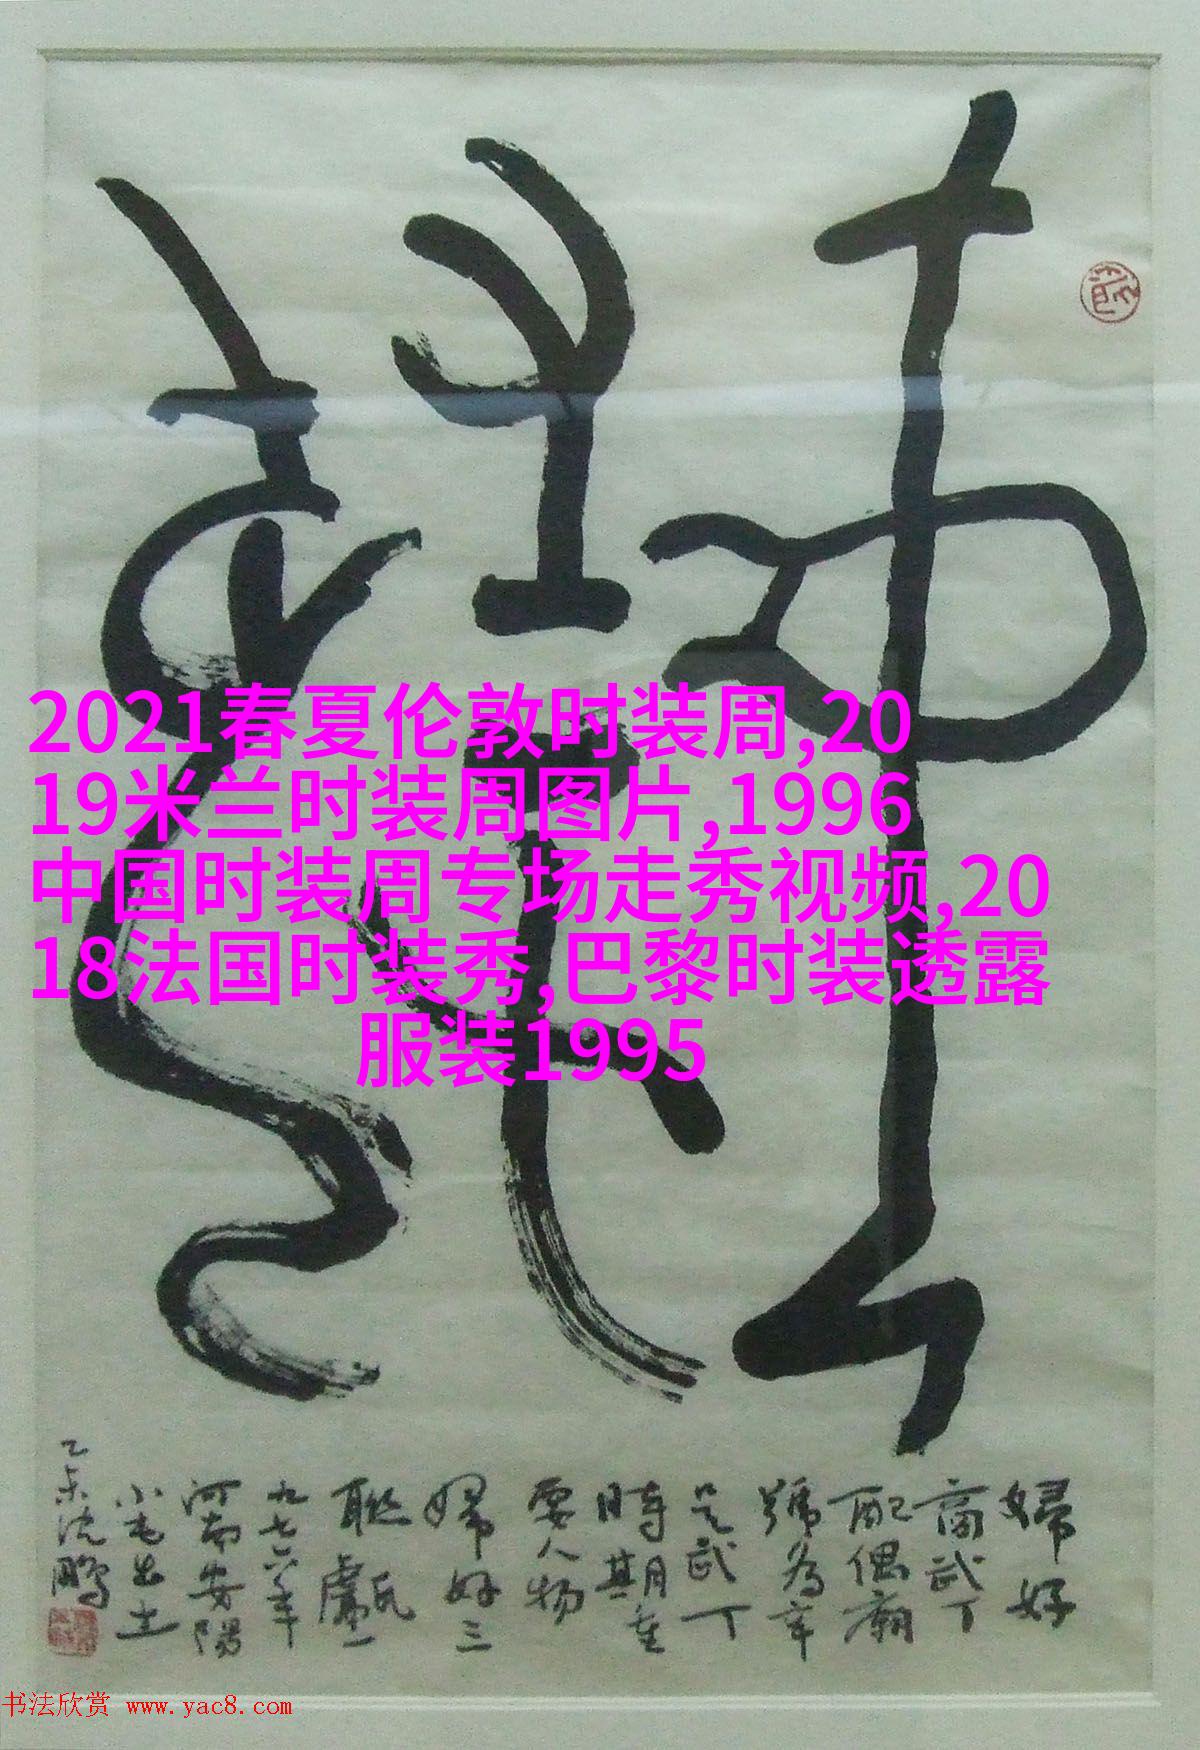 2021春夏伦敦时装周,20
19米兰时装周图片,1996
中国时装周专场走秀视频,20
18法国时装秀,巴黎时装透露
服装1995
婦好
商武丁
配偶廟
號为辛
是武丁
時期重
要人物
婦好三
聯甗一
九七六年
河南安陽
小屯出土
乙未沈鹏
书法欣赏 www.yac8.com